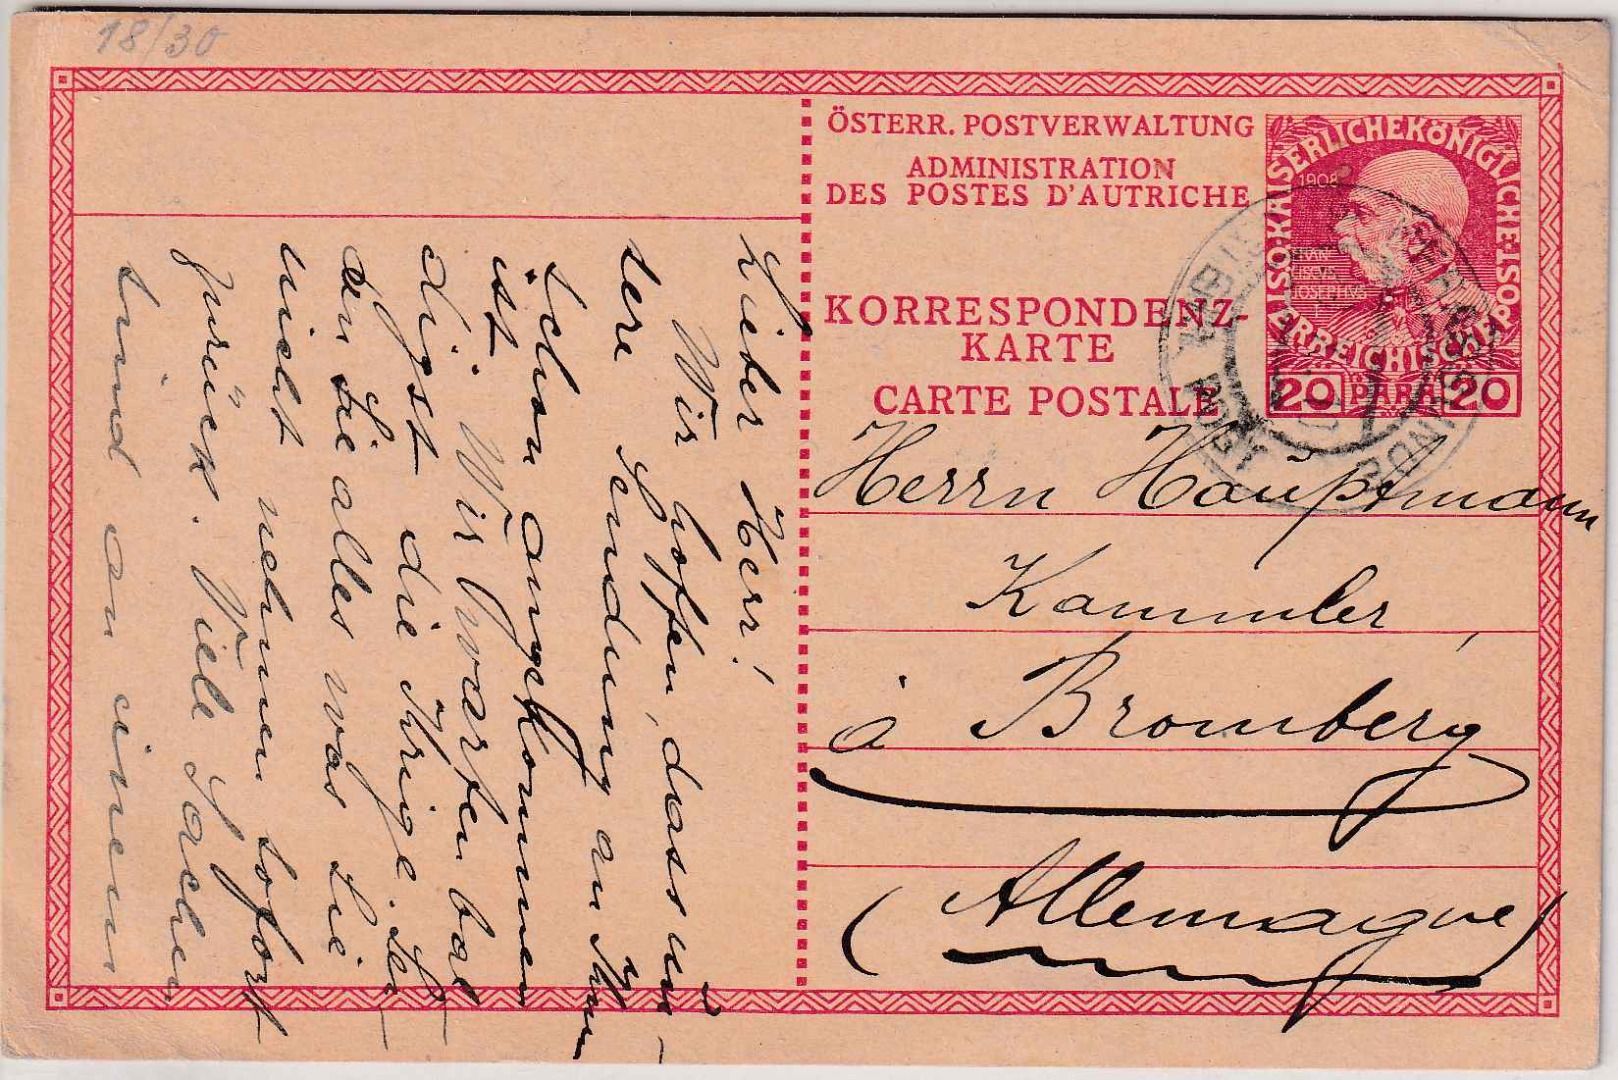 18/30
ÖSTERR. POSTVERWALTUNG
ADMINISTRATION
DES POSTES D'AUTRICHE
KORRESPONDENZ-
KARTE
CARTE POSTALE
KAISERLICHEKÖNIGLICHE
ÖSTERREICHISCHE POST
1908
FRAN
CISCVS
IOSEPHVS I
20 PARA 20
Herrn Hauptmann
Kammler,
à Bromberg
(Allemagne)
Lieber Herr!
Wir hoffen, dass un-
sere Sendung an Ihnen
schon angekommen
ist. Wir warten bal-
digst die Ihrige. Sen-
den Sie alles was Sie
nicht nehmen sofort
zurück. Viele Sachen
sind an einem